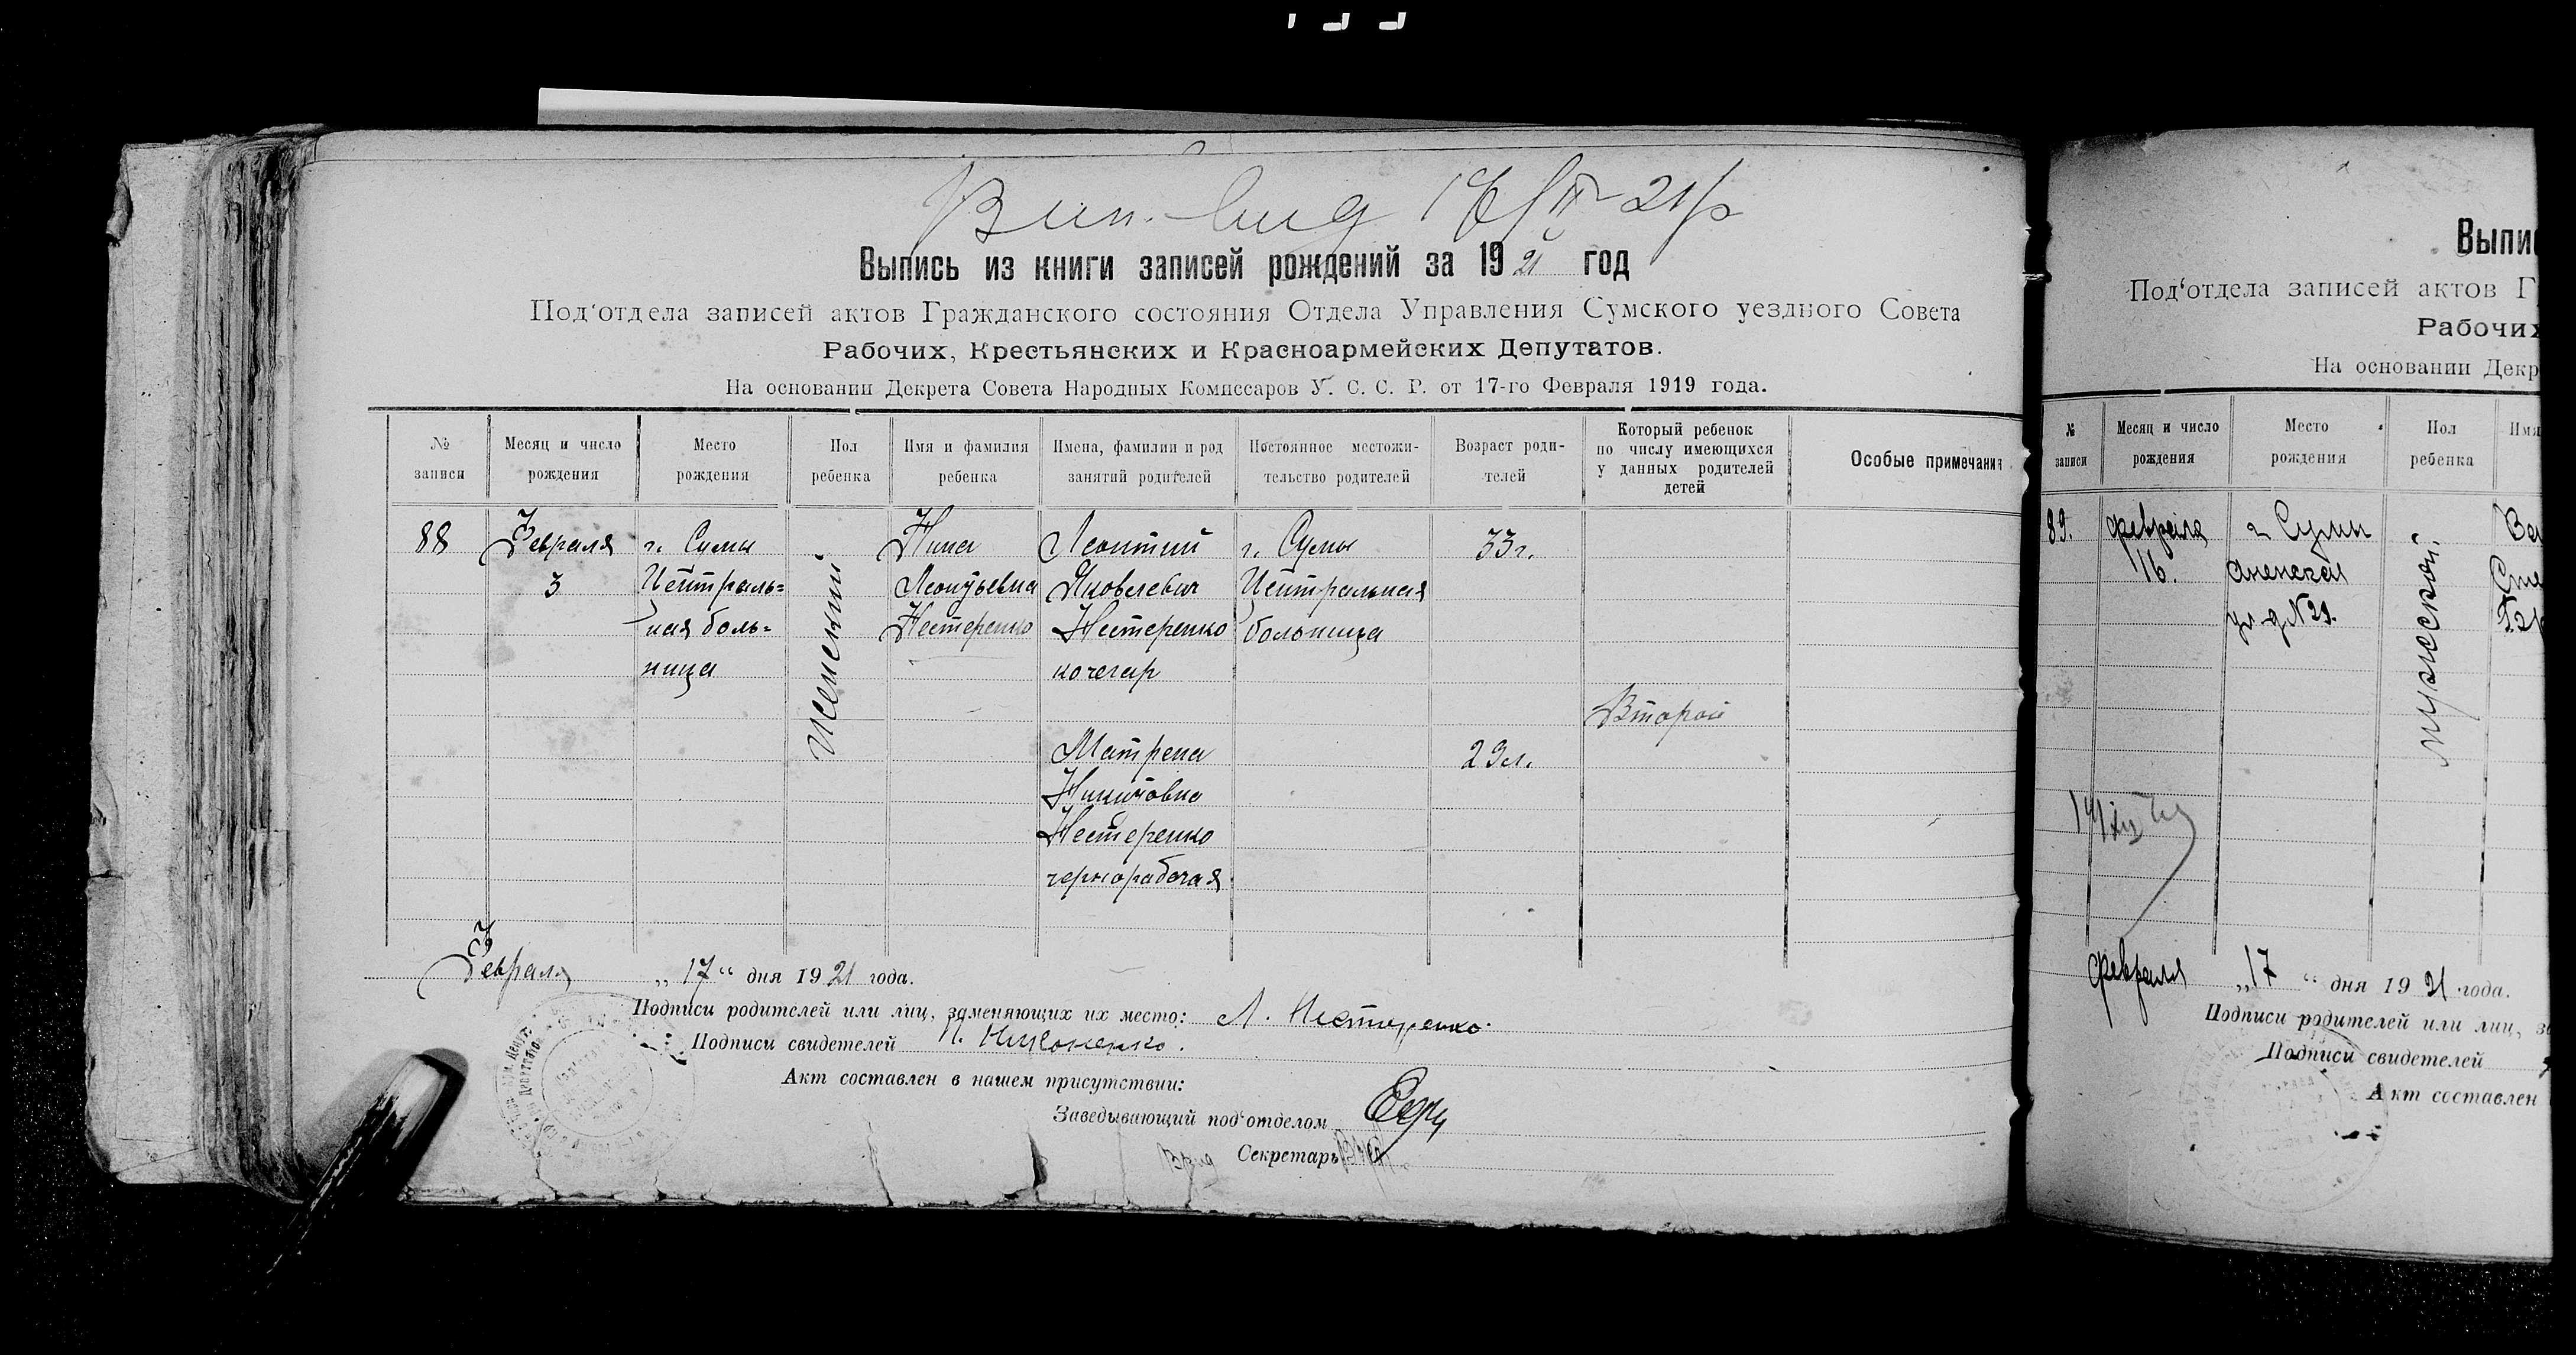 Выпись из книги записей рождений за 1921 год
Под'отдела записей актов Гражданского состояния Отдела Управления Сумского уездного Совета
Рабочих, Крестьянских и Красноармейских Депутатов.
На основании Декрета Совета Народных Комиссаров У. С. С. Р. от 17-го Февраля 1919 года.
№ записи
Месяц и число рождения
Место рождения
Пол ребенка
Имя и фамилия ребенка
Имена, фамилии и род занятий родителей
Постоянное местожи-
тельство родителей
Возраст роди-
телей
Который ребенок
по числу имеющихся
у данных родителей
детей
Особые примечания
88
Февраля
3
г. Сумы
Централь=
ная боль=
ница
Женский
Нина
Леонтьевна
Нестеренко
Леонтий
Яковлевич
Нестеренко
кочегар
Матрена
Никитовна
Нестеренко
чернорабочая
г. Сумы
Центральная
больница
33 г.
29 л.
Второй
Февраля „17“ дня 1921 года.
Подписи родителей или лиц, заменяющих их место: Л. Нестеренко.
Подписи свидетелей
Акт составлен в нашем присутствии:
Заведывающий под'отделом
Секретарь
Выпи
Под'отдела записей актов Г
Рабочих
На основании Декр
№ записи
Месяц и число рождения
Место рождения
Пол ребенка
Имя
89.
февраля
16.
г Сумы
ул д N21.
мужской.
февраля „17“ дня 1921 года.
Подписи родителей или лиц, за
Подписи свидетелей
Акт составлен